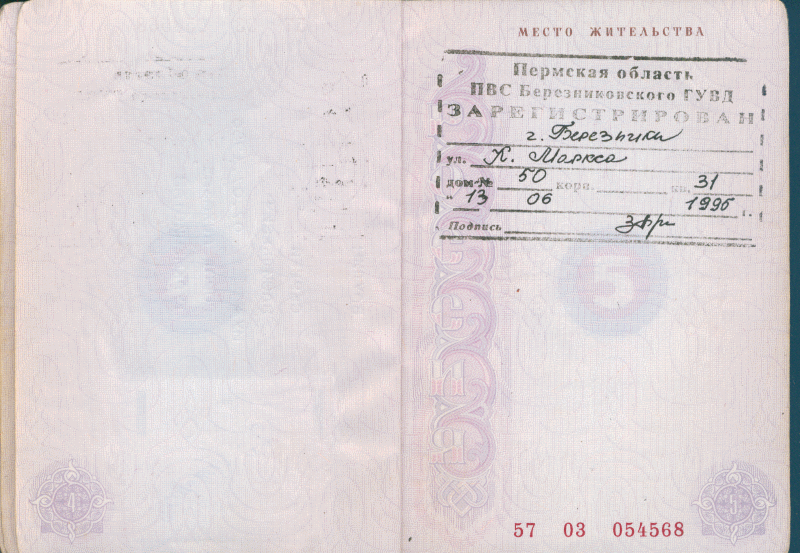 МЕСТО ЖИТЕЛЬСТВА
Пермская область
ПВС Березниковского ГУВД
ЗАРЕГИСТРИРОВАН
г. Березники
ул. К. Маркса
дом № 50 корп. кв. 31
" 13 06 1995 г.
Подпись
4
5
4
5
57 03 054568